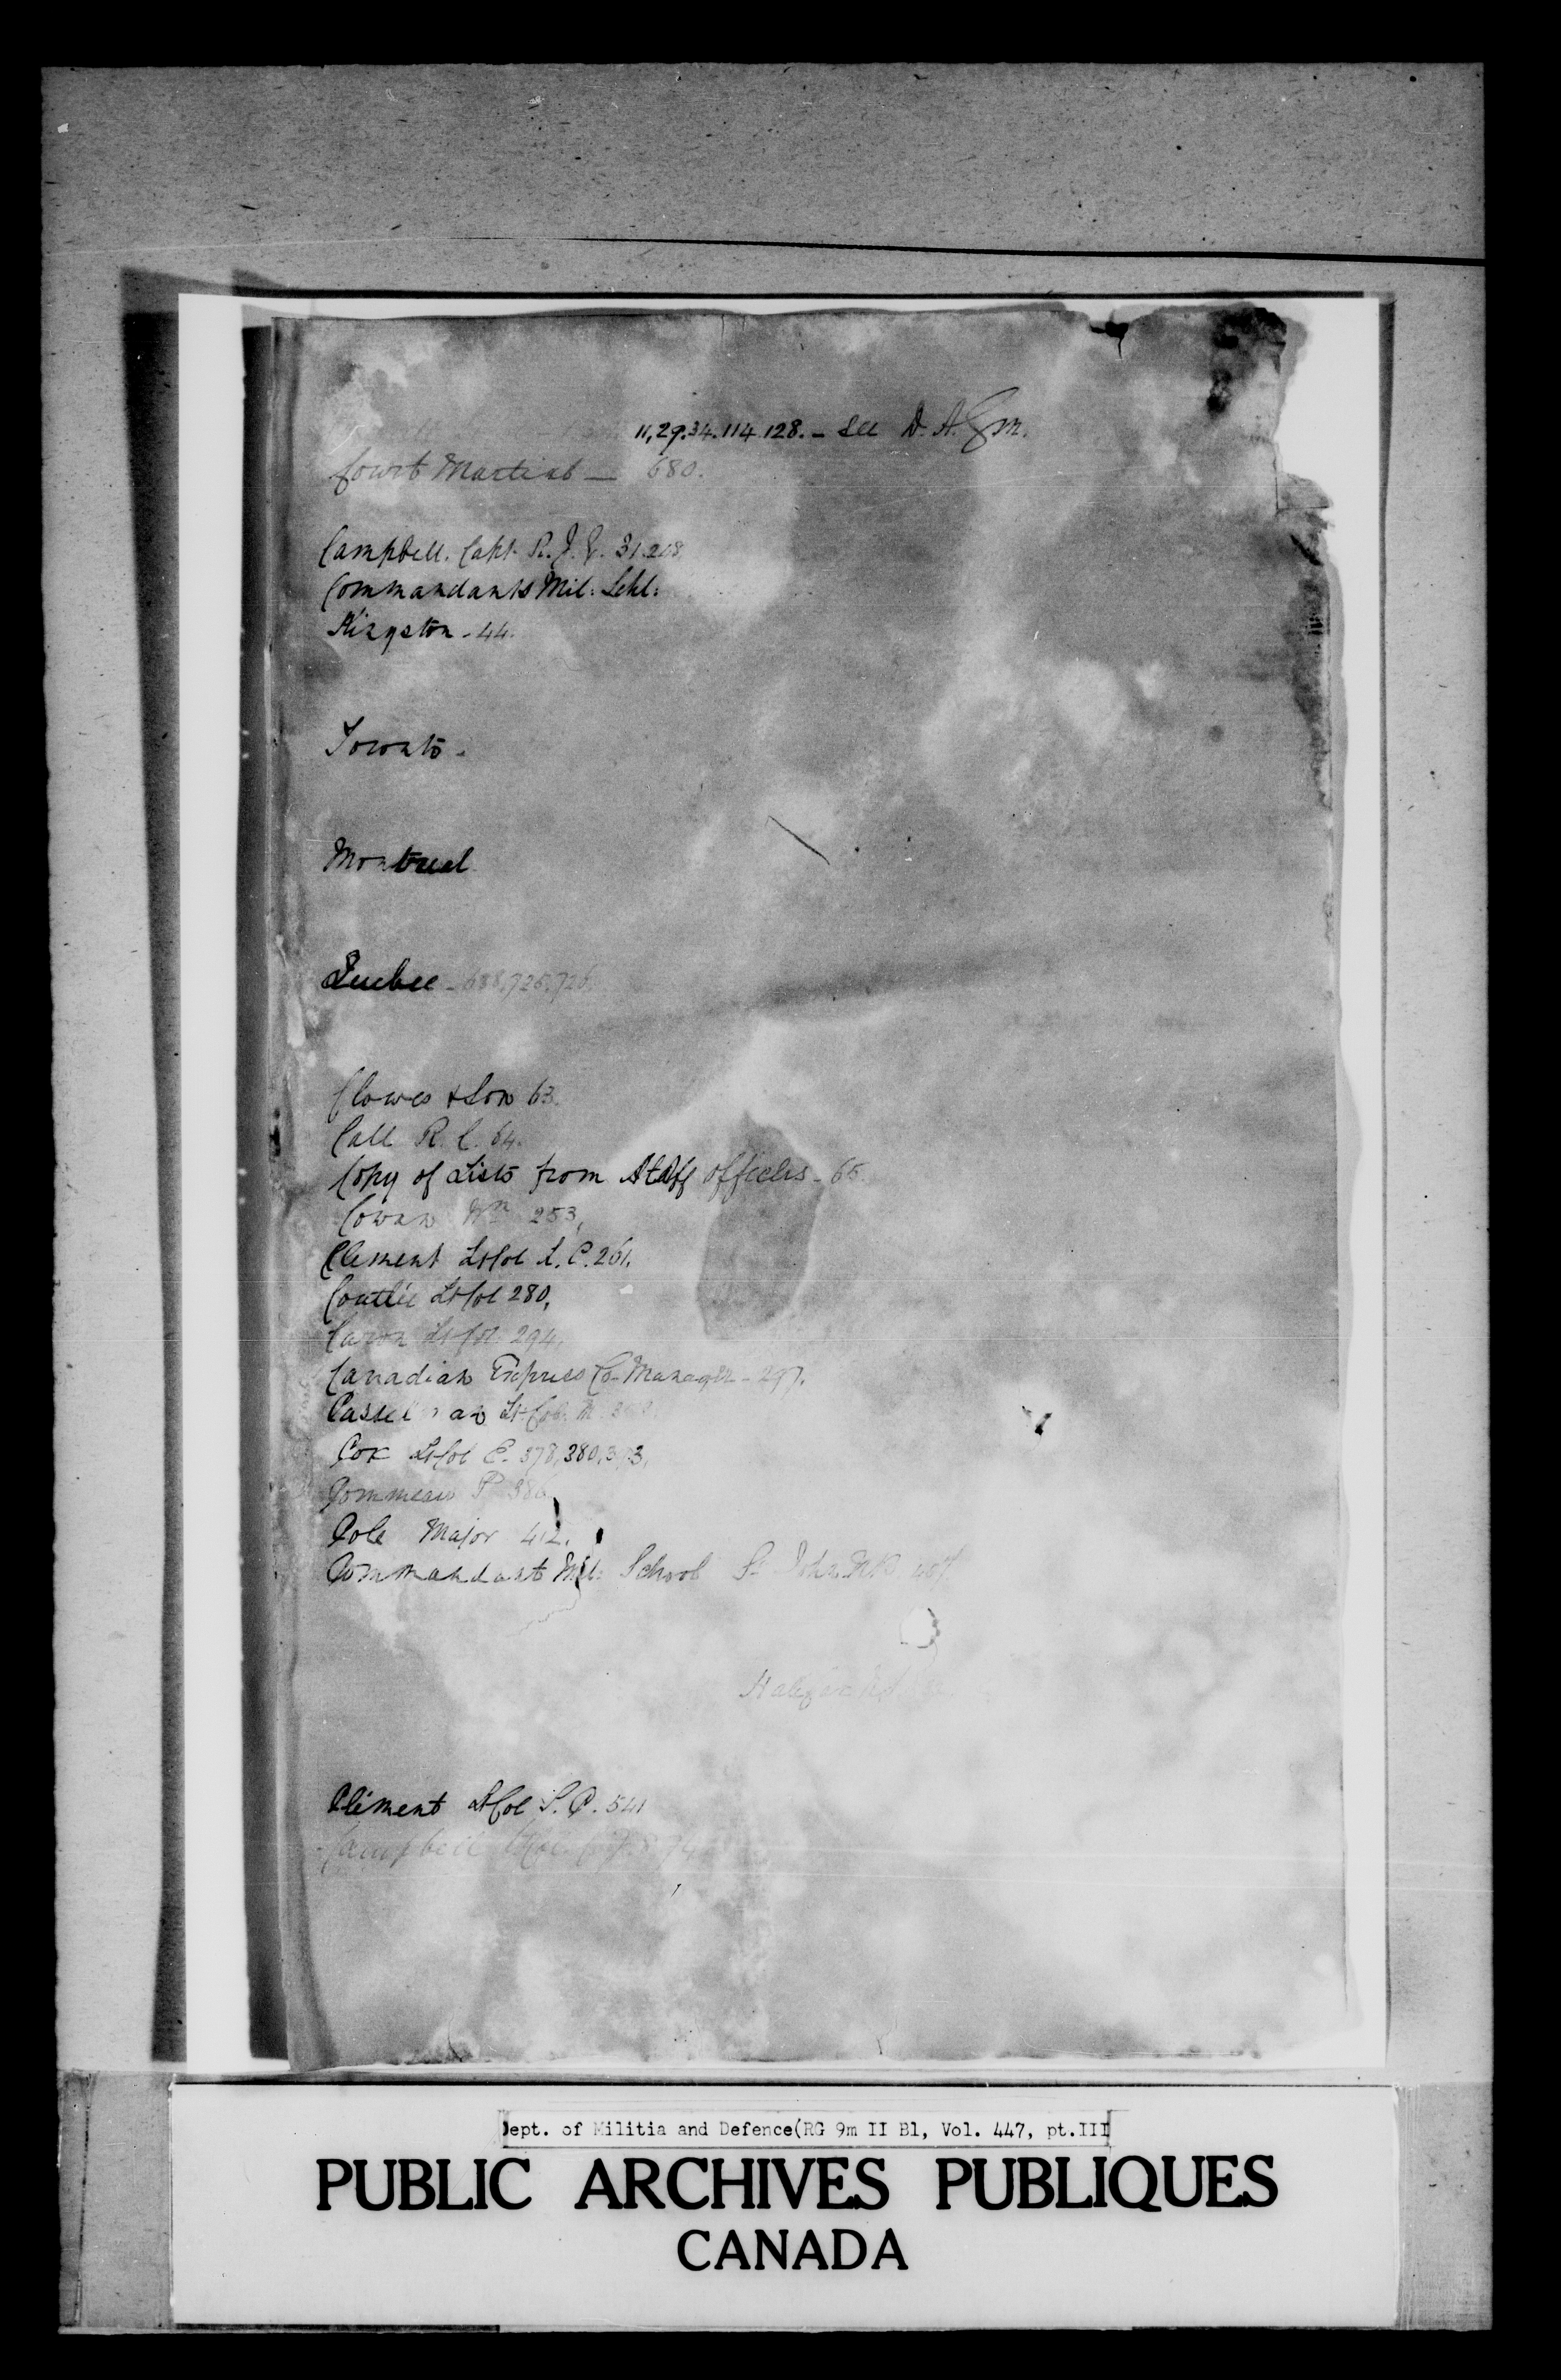 11,29.34.114.128. – See D. A. Gen.
Court Martial — 680.
Campbell. Capt. R. J. G. 31.208
Commandants Mil: Schl:
Kingston - 44.
Toronto.
Montreal
Quebec - 688,725,726
Clowes & Son 63.
Call R. C. 64.
Copy of Lists from Staff officers - 65
Cowan Wm 253,
Clement Lt Col L. C. 261.
Coutlée Lt Col 280,
Caron Lt Col. 294,
Canadian Express Co. Manager - 297.
Casselman Lt Col.
Cox Lt Col E. 378,380,393,
Commeau P.
Cole Major 412.
Commandant Mil: School St John NB
Halifax N.S.
Clément Lt Col L. C. 541
Campbell Lt Col.
Dept. of Militia and Defence(RG 9m II B1, Vol. 447, pt.III
PUBLIC ARCHIVES PUBLIQUES
CANADA